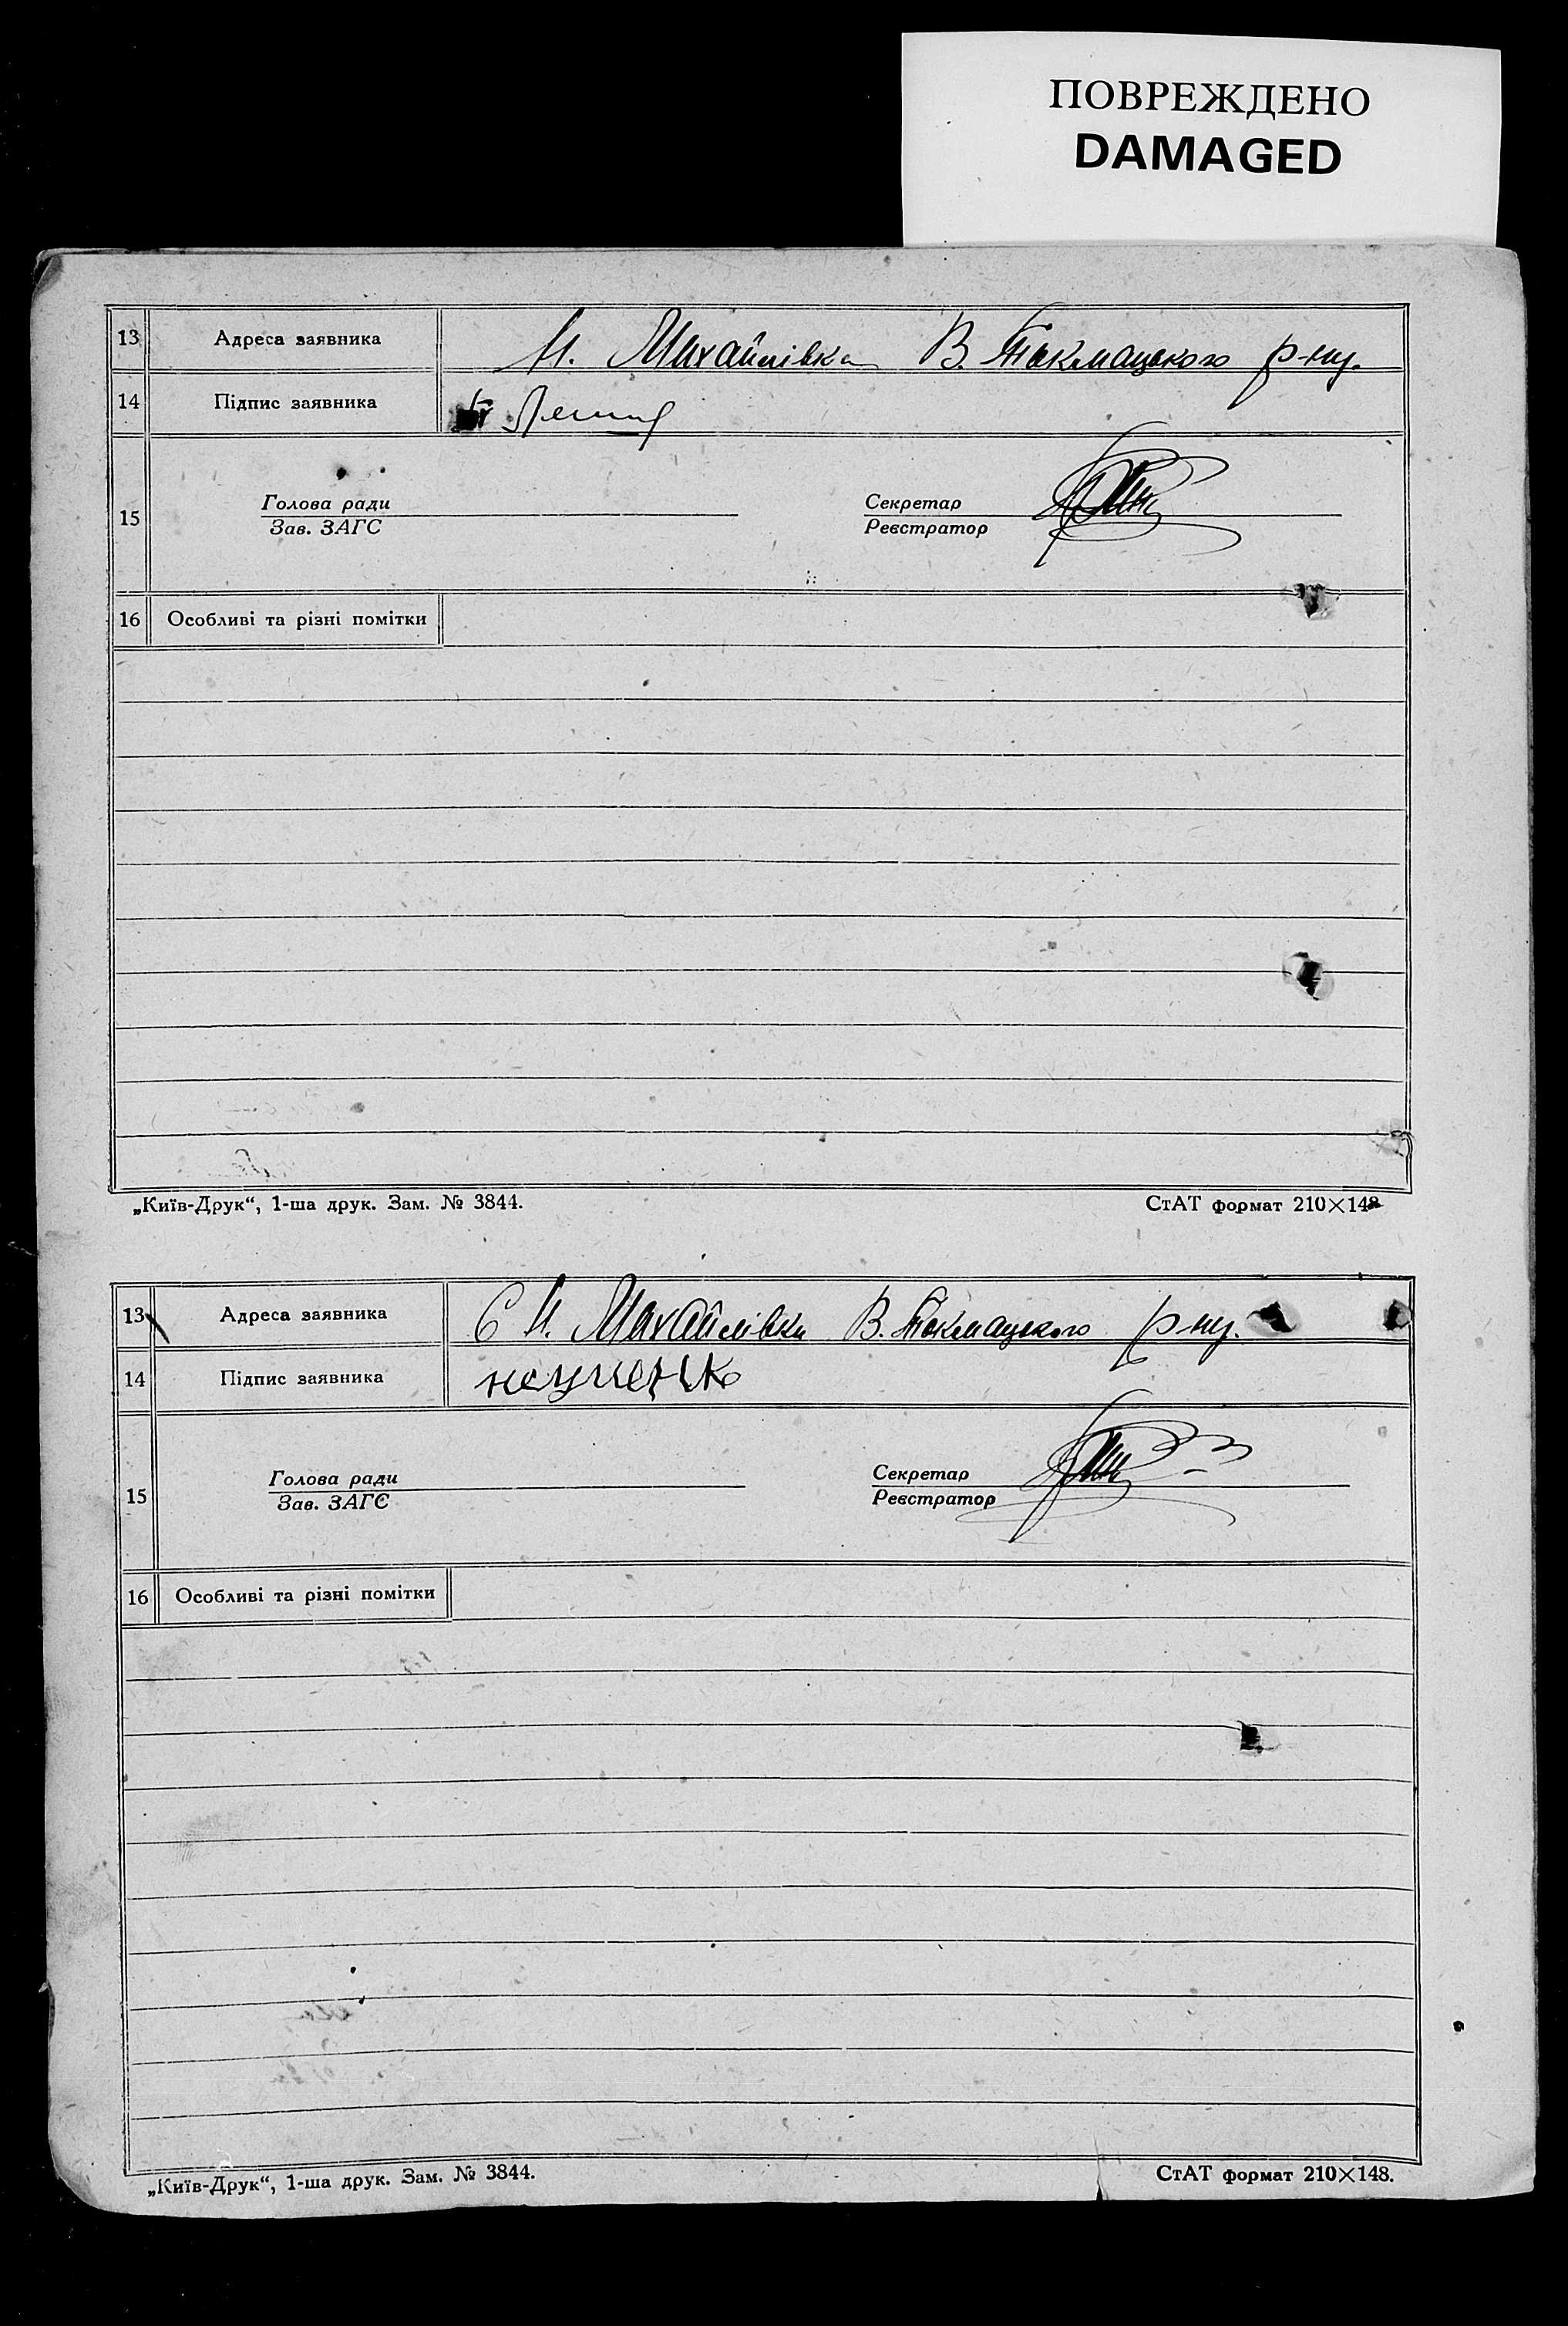 ПОВРЕЖДЕНО
DAMAGED
13 Адреса заявника Н. Михайлівка В. Токмацького р-ну.
14 Підпис заявника
Голова ради Секретар
15
Зав. ЗАГС Реєстратор
16 Особливі та різні помітки
„Київ-Друк“, 1-ша друк. Зам. № 3844. СтАТ формат 210×148
13 Адреса заявника С Н. Михайлівка В. Токмацького р-ну.
14 Підпис заявника
Голова ради Секретар
15
Зав. ЗАГС Реєстратор
16 Особливі та різні помітки
„Київ-Друк“, 1-ша друк. Зам. № 3844. СтАТ формат 210×148.